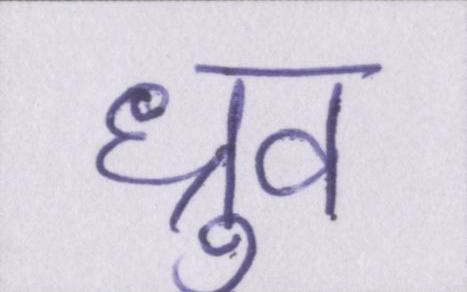 ध्रुव